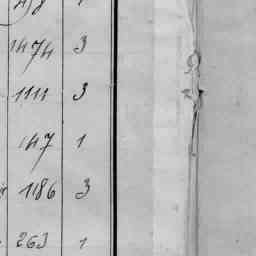 1474 3
1111 3
147 1
1186 3
263 1